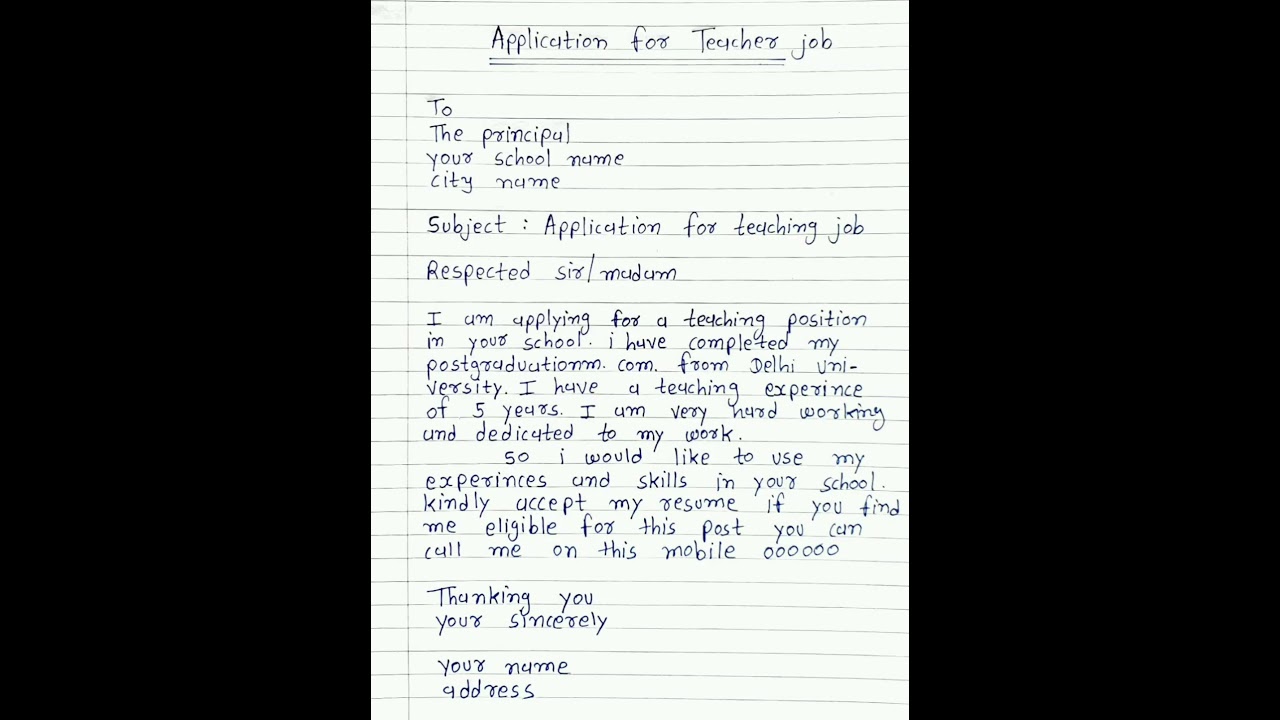 Application for Teacher job
To
The principal
your school name
city name
Subject : Application for teaching job
Respected sir/madam
I am applying for a teaching position
in your school. i have completed my
postgraduationm. com. from Delhi uni-
versity. I have a teaching experince
of 5 years. I am very hard working
and dedicated to my work.
so i would like to use my
experinces and skills in your school.
kindly accept my resume if you find
me eligible for this post you can
call me on this mobile 000000
Thanking you
your sincerely
your name
address